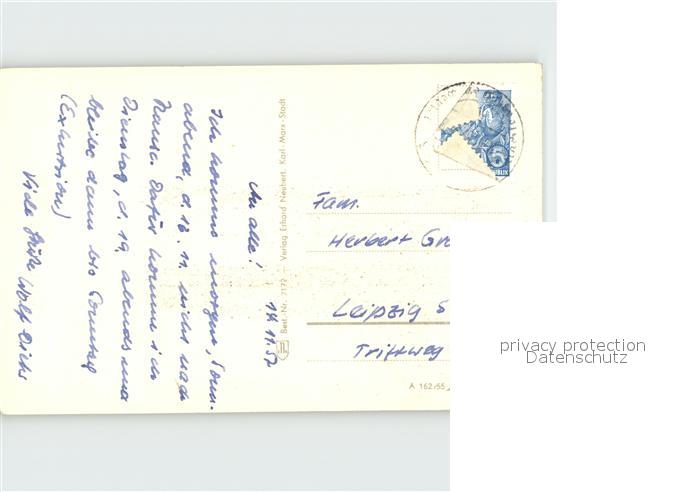 An alle!
14.11.57
Ich komme morgen, Sonn-
abend, d. 16. 11. nicht nach
Hause. Dafür komme ich
Dienstag, d. 19. abends und
bleibe dann bis Sonntag
(Exkursion)
Viele Grüße Wolf-
Best. Nr. 7172 — Verlag Erhard Neubert, Karl-Marx-Stadt
Fam.
Herbert Gr
Leipzig S
Triftweg
A 162/55
privacy protection
Datenschutz